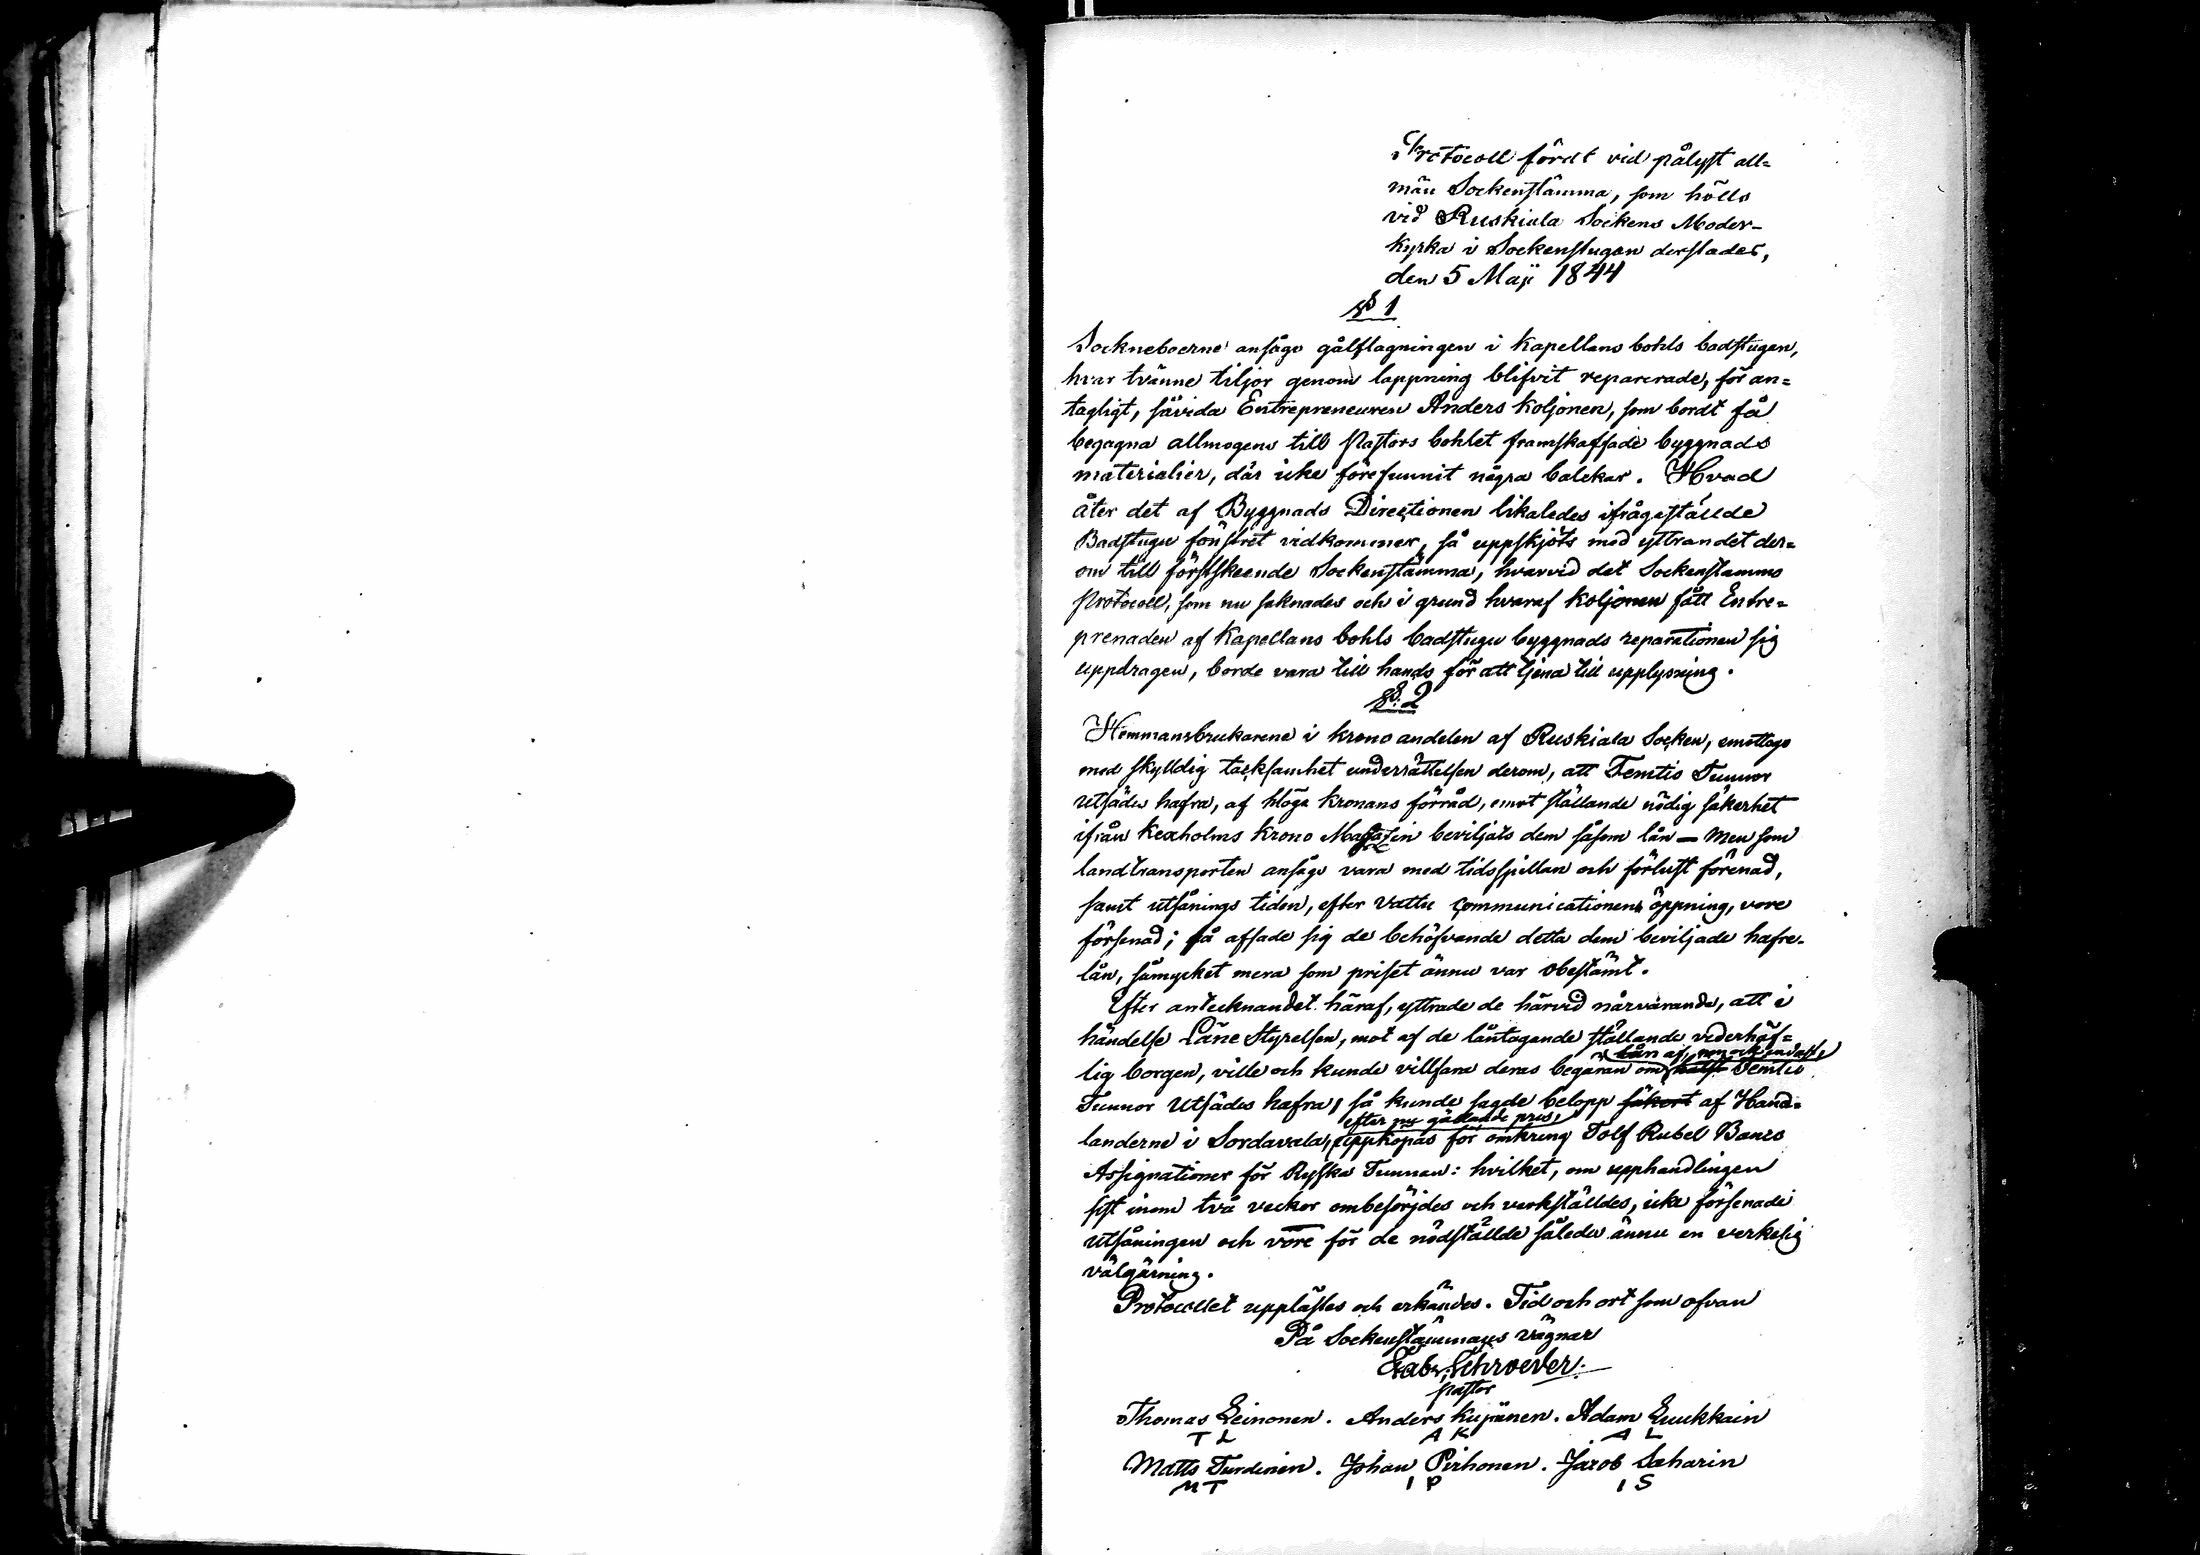 Protocoll fördt vid pålyst all=
män Sockenstämma, som hölls
vid Ruskiala Sockens Moder-
kyrka i Sockenstugan derstädes,
den 5 Maji 1844
§ 1
Sockneboerne ansågo gålflagningen i Kapellans bohls badstugan,
hvar tvänne tiljor genom lappning blifvit reparerade, för an=
tagligt, såvida Entrepreneuren Anders Koljonen, som bordt få
begagna allmogens till Pastors bohlet framskaffade byggnads
materialier, där icke förefunnit några balckar. Hvad
åter det af Byggnads Directionen likaledes ifrågaställde
Badstugu fönstret vidkommer, så uppskjöts med yttrandet der=
om till förstskeende Sockenstämma, hvarvid det Sockenstämmo
Protocoll, som nu saknades och i grund hvaraf Koljonen fått Entre=
prenaden af Kapellans bohls badstugu byggnads reparationen sig
uppdragen, borde vara till hands för att tjena till upplysning.
§. 2
Hemmansbrukarene i krono andelen af Ruskiala Socken, emottogo
med skylldig tacksamhet underrättelsen derom, att Femtio Tunnor
Utsädes hafra, af höga Kronans förråd, emot ställande nödig säkerhet
ifrån Kexholms Krono Magazin beviljats dem såsom lån — Men som
landtransporten ansågs vara med tidsspillan och förlust förenad,
samt utsånings tiden, efter vattu communicationens öppning, vore
försenad; så afsade sig de behöfvande detta dem beviljade hafre-
lån, såmycket mera som priset ännu var obestämt.
Efter antecknandet häraf, yttrade de härvid närvarande, att i
händelse Läne Styrelsen, mot af de låntagande ställande vederhäf=
lån af, men ock endast,
lig borgen, ville och kunde villfara deras begäran om Femtio
Tunnor Utsädes hafra, så kunde sagde belopp säkert af Hand=
efter nu gällande pris,
landerne i Sordavala, uppköpas för omkring Tolf Rubel Banco
Assignationer för Ryska Tunnan: hvilket, om upphandlingen
sist inom två veckor ombesörjdes och verkställdes, icke försenade
utsåningen och vore för de nödställde således ännu en verkelig
välgärning.
Protocollet upplästes och erkändes. Tid och ort som ofvan
På Sockenstämmans vägnar
Gabr. Schroeder.
pastor
Thomas Leinonen. Anders Kupänen. Adam Luukkain
T L A K A L
Matts Turdinen. Johan Pirhonen. Jacob Saharin
M T I P I S